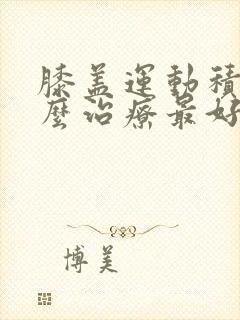 膝盖運動積
麼治療最好
博美